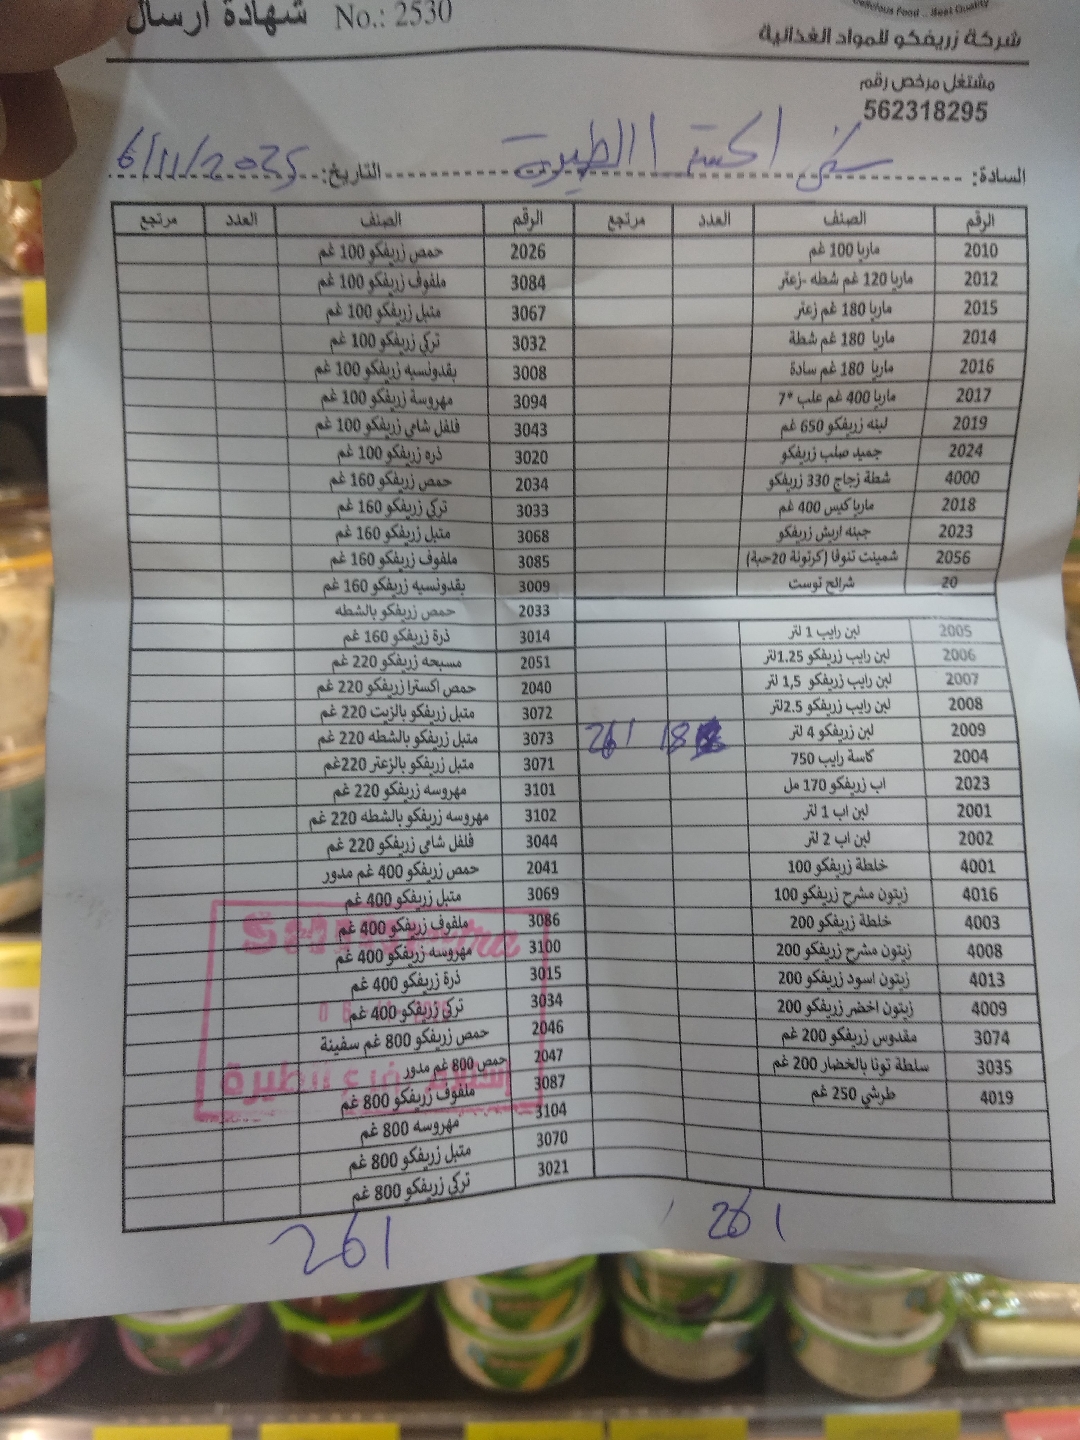 Delicious Food .. Best Quality
شهادة ارسال No.: 2530
شركة زريفكو للمواد الغذائية
مشتغل مرخص رقم
562318295
السادة: الطيرة التاريخ: 6/11/2025
الرقم الصنف العدد مرتجع الرقم الصنف العدد مرتجع
2010 ماريا 100 غم 2026 حمص زريفكو 100 غم
2012 ماريا 120 غم شطه -زعتر 3084 ملفوف زريفكو 100 غم
2015 ماريا 180 غم زعتر 3067 متبل زريفكو 100 غم
2014 ماريا 180 غم شطة 3032 تركي زريفكو 100 غم
2016 ماريا 180 غم سادة 3008 بقدونسيه زريفكو 100 غم
2017 ماريا 400 غم علب *7 3094 مهروسة زريفكو 100 غم
2019 لبنه زريفكو 650 غم 3043 فلفل شامي زريفكو 100 غم
2024 جميد صلب زريفكو 3020 ذره زريفكو 100 غم
4000 شطة زجاج 330 زريفكو 2034 حمص زريفكو 160 غم
2018 ماريا كيس 400 غم 3033 تركي زريفكو 160 غم
2023 جبنه اريش زريفكو 3068 متبل زريفكو 160 غم
2056 شمينت تنوفا (كرتونة 20حبة) 3085 ملفوف زريفكو 160 غم
20 شرائح توست 3009 بقدونسيه زريفكو 160 غم
2033 حمص زريفكو بالشطه
2005 لبن رايب 1 لتر 3014 ذرة زريفكو 160 غم
2006 لبن رايب زريفكو 1.25لتر 2051 مسبحه زريفكو 220 غم
2007 لبن رايب زريفكو 1,5 لتر 2040 حمص اكسترا زريفكو 220 غم
2008 لبن رايب زريفكو 2.5لتر 3072 متبل زريفكو بالزيت 220 غم
2009 لبن زريفكو 4 لتر 18 261 3073 متبل زريفكو بالشطه 220 غم
2004 كاسة رايب 750 3071 متبل زريفكو بالزعتر 220غم
2023 اب زريفكو 170 مل 3101 مهروسه زريفكو 220 غم
2001 لبن اب 1 لتر 3102 مهروسه زريفكو بالشطه 220 غم
2002 لبن اب 2 لتر 3044 فلفل شامي زريفكو 220 غم
4001 خلطة زريفكو 100 2041 حمص زريفكو 400 غم مدور
4016 زيتون مشرح زريفكو 100 3069 متبل زريفكو 400 غم
4003 خلطة زريفكو 200 3086 ملفوف زريفكو 400 غم
4008 زيتون مشرح زريفكو 200 3100 مهروسه زريفكو 400 غم
4013 زيتون اسود زريفكو 200 3015 ذرة زريفكو 400 غم
4009 زيتون اخضر زريفكو 200 3034 تركي زريفكو 400 غم
3074 مقدوس زريفكو 200 غم 2046 حمص زريفكو 800 غم سفينة
3035 سلطة تونا بالخضار 200 غم 2047 حمص 800 غم مدور
4019 طرشي 250 غم 3087 ملفوف زريفكو 800 غم
3104 مهروسه 800 غم
3070 متبل زريفكو 800 غم
3021 تركي زريفكو 800 غم
261 261